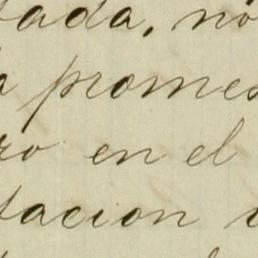 tada, no
a promes
ro en el
tacion